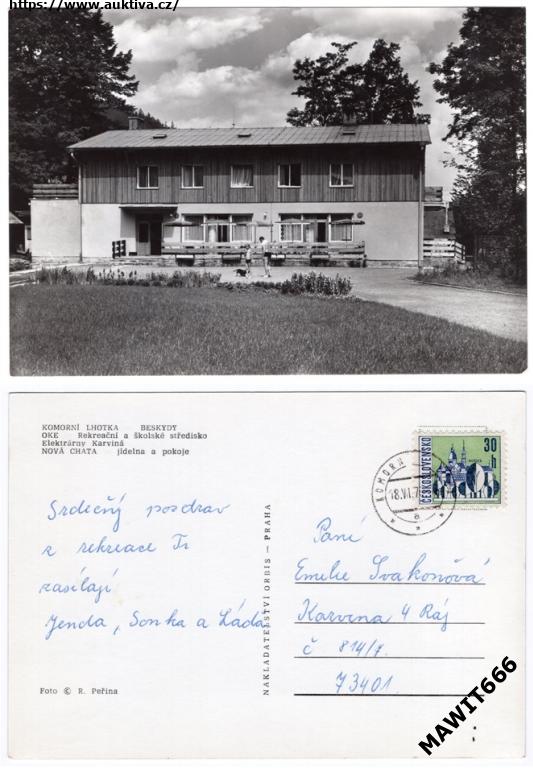 https://www.auktiva.cz/
KOMORNÍ LHOTKA BESKYDY
OKE Rekreační a školské středisko
Elektrárny Karviná
NOVÁ CHATA jídelna a pokoje
ČESKOSLOVENSKO
30 h
KOMORN
18.VI.7
a
Srdečný pozdrav
z rekreace Ti
zasílají
Jenda, Sonka a Láďa
NAKLADATELSTVÍ ORBIS — PRAHA
Paní
Emilie Svakoňová
Karvina 4 Ráj
č 814/7.
73401.
Foto © R. Peřina
MAWIT666